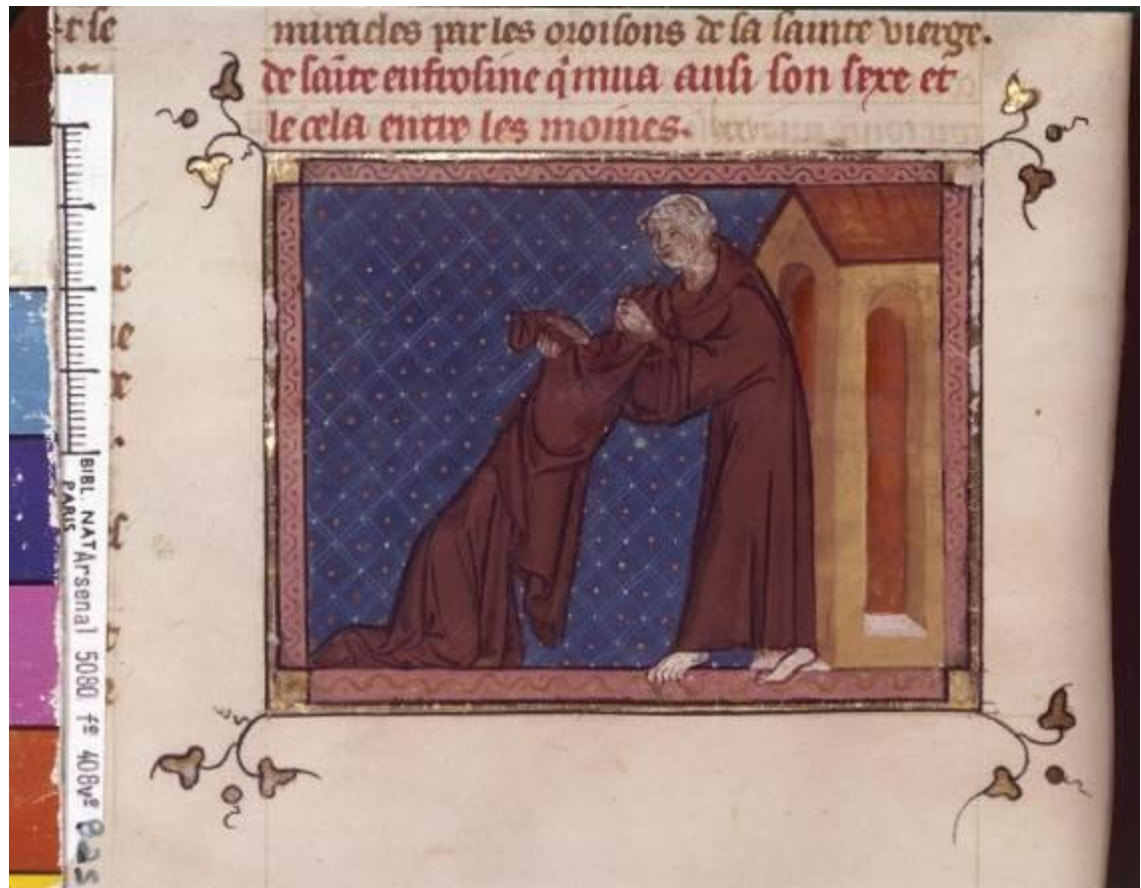 miracles par les oroisons de la sainte vierge.
de saīte eufrosine q̄ mua ausi son sexe et
le cela entre les moines.
BIBL. NAT
PARIS
Arsenal 5080 fº 408vº Bas